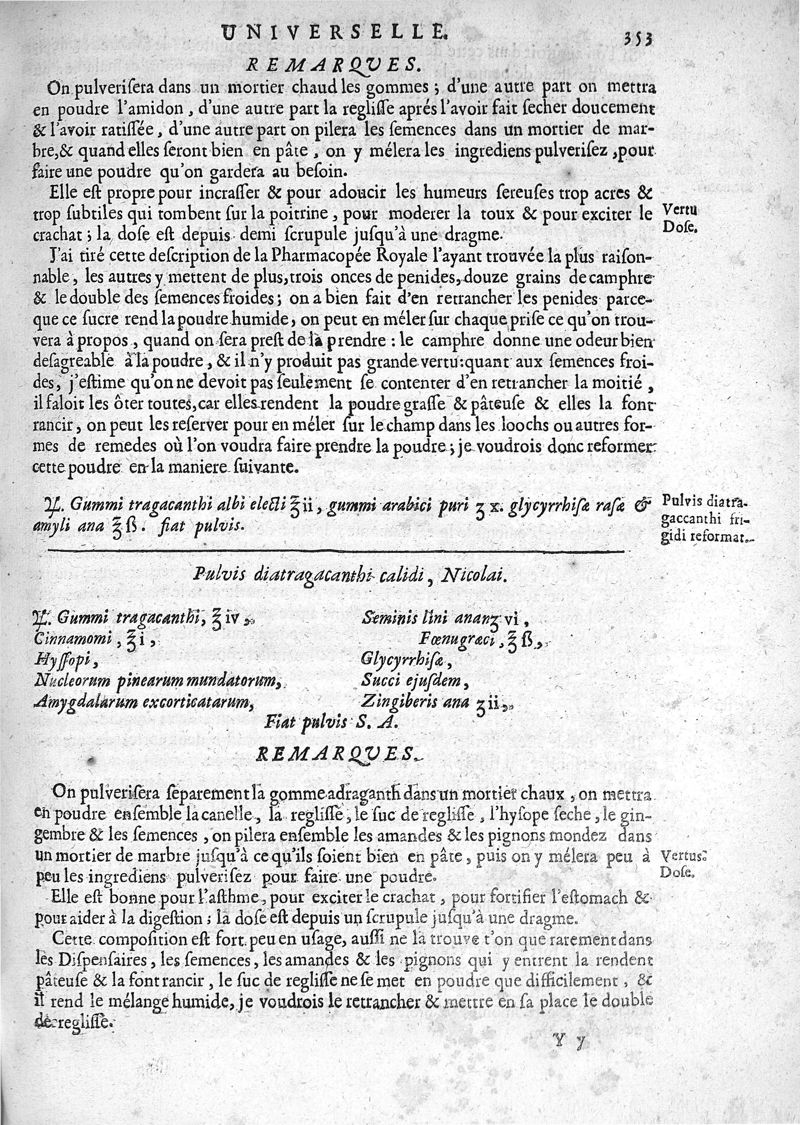 UNIVERSELLE. 353
REMARQUES.
On pulveriſera dans un mortier chaud les gommes ; d'une autre part on mettra
en poudre l'amidon, d'une autre part la regliſſe aprés l'avoir fait ſecher doucement
& l'avoir ratiſſée, d'une autre part on pilera les ſemences dans un mortier de mar-
bre,& quand elles ſeront bien en pâte, on y mélera les ingrediens pulveriſez, pour
faire une poudre qu'on gardera au beſoin.
Elle eſt propre pour incraſſer & pour adoucir les humeurs ſereuſes trop acres &
trop ſubtiles qui tombent ſur la poitrine, pour moderer la toux & pour exciter le
crachat ; la doſe eſt depuis demi ſcrupule juſqu'à une dragme.
Vertu
Doſe.
J'ai tiré cette deſcription de la Pharmacopée Royale l'ayant trouvée la plus raiſon-
nable, les autres y mettent de plus, trois onces de penides, douze grains de camphre
& le double des ſemences froides ; on a bien fait d'en retrancher les penides parce-
que ce ſucre rend la poudre humide, on peut en méler ſur chaque priſe ce qu'on trou-
vera à propos, quand on ſera preſt de la prendre : le camphre donne une odeur bien
deſagreable à la poudre, & il n'y produit pas grande vertu : quant aux ſemences froi-
des, j'eſtime qu'on ne devoit pas ſeulement ſe contenter d'en retrancher la moitié,
il faloit les ôter toutes, car elles rendent la poudre graſſe & pâteuſe & elles la font
rancir, on peut les reſerver pour en méler ſur le champ dans les loochs ou autres for-
mes de remedes où l'on voudra faire prendre la poudre ; je voudrois donc reformer
cette poudre en la maniere ſuivante.
℞. Gummi tragacanthi albi electi ℥ii, gummi arabici puri ʒ x. glycyrrhiſæ raſæ &
amyli ana ℥ ß. fiat pulvis.
Pulvis diatra-
gaccanthi fri-
gidi reformat.
Pulvis diatragacanthi calidi, Nicolai.
℞. Gummi tragacanthi, ℥ iv, Seminis lini ana ʒ vi,
Cinnamomi, ℥ i, Fœnugræci, ℥ ß,
Hyſſopi, Glycyrrhiſæ,
Nucleorum pinearum mundatorum, Succi ejuſdem,
Amygdalarum excorticatarum, Zingiberis ana ʒ ii,
Fiat pulvis S. A.
REMARQUES.
On pulveriſera ſeparement la gomme adraganth dans un mortier chaux, on mettra
en poudre enſemble la canelle, la regliſſe, le ſuc de regliſſe, l'hyſope ſeche, le gin-
gembre & les ſemences, on pilera enſemble les amandes & les pignons mondez dans
un mortier de marbre juſqu'à ce qu'ils ſoient bien en pâte, puis on y mélera peu à
peu les ingrediens pulveriſez pour faire une poudre.
Vertus.
Doſe.
Elle eſt bonne pour l'aſthme, pour exciter le crachat, pour fortifier l'eſtomach &
pour aider à la digeſtion ; la doſe eſt depuis un ſcrupule juſqu'à une dragme.
Cette compoſition eſt fort peu en uſage, auſſi ne la trouve t'on que rarement dans
les Diſpenſaires, les ſemences, les amandes & les pignons qui y entrent la rendent
pâteuſe & la font rancir, le ſuc de regliſſe ne ſe met en poudre que difficilement, &
il rend le mélange humide, je voudrois le retrancher & mettre en ſa place le double
de regliſſe.
Y y